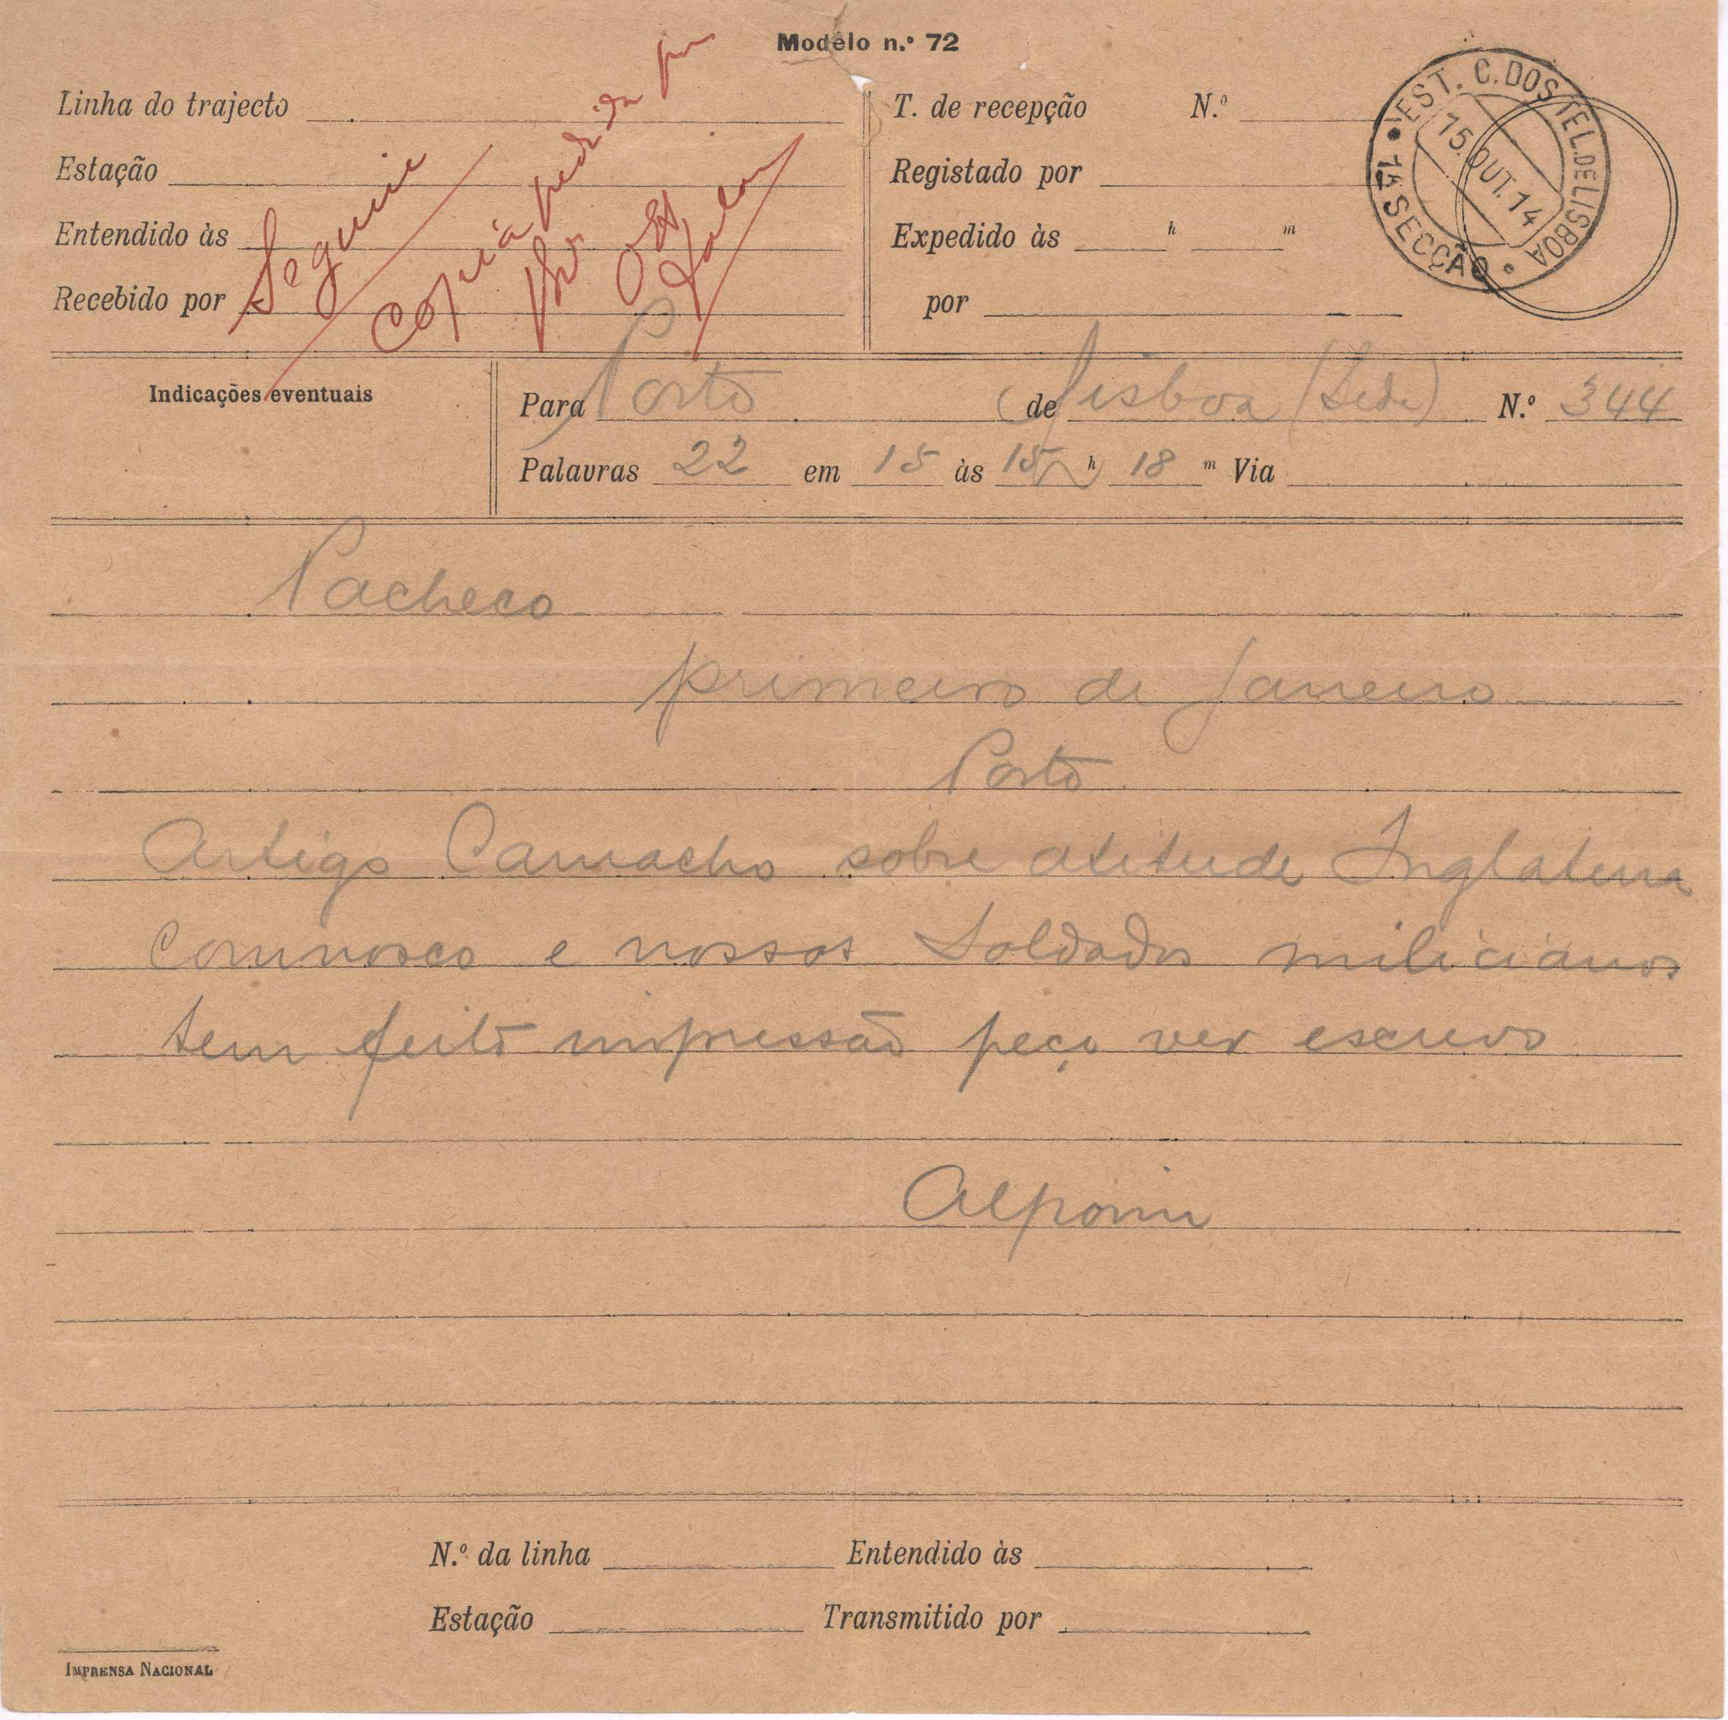 Modêlo n.º 72
Linha do trajecto
Estação
Entendido às
Recebido por
Seguiu
Copia pedida por
T. de recepção N.º
Registado por
Expedido às h m
por
EST. C. DOS TEL. DE LISBOA
15. OUT. 14
1ª SECÇÃO
Indicações eventuais
Para Porto de Lisboa (Sede) N.º 344
Palavras 22 em 15 às 15 h 18 m Via
Pacheco
primeiro de Janeiro
Porto
Artigo Camacho sobre atitude Inglaterra
comnosco e nossos Soldados milicianos
tem feito impressão peço ver escrevo
Alpoim
N.º da linha Entendido às
Estação Transmitido por
IMPRENSA NACIONAL